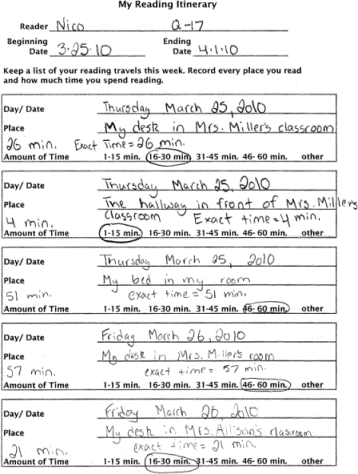 My Reading Itinerary
Reader Nico Q-17
Beginning Date 3.25.10 Ending Date 4.1.10
Keep a list of your reading travels this week. Record every place you read
and how much time you spend reading.
Day/ Date Thursday March 25, 2010
Place My desk in Mrs. Miller's classroom
26 min. Exact Time = 26 min.
Amount of Time 1-15 min. 16-30 min. 31-45 min. 46- 60 min. other
Day/ Date Thursday March 25, 2010
Place The hallway in front of Mrs. Millers
classroom Exact time = 4 min.
4 min.
Amount of Time 1-15 min. 16-30 min. 31-45 min. 46- 60 min. other
Day/ Date Thursday March 25, 2010
Place My bed in my room
51 min. exact time = 51 min.
Amount of Time 1-15 min. 16-30 min. 31-45 min. 46- 60 min. other
Day/ Date Friday March 26, 2010
Place My desk in Mrs. Miller's room
57 min. exact time = 57 min.
Amount of Time 1-15 min. 16-30 min. 31-45 min. 46- 60 min. other
Day/ Date Friday March 26, 2010
Place My desk in Mrs. Allison's classroom
21 min. exact time = 21 min.
Amount of Time 1-15 min. 16-30 min. 31-45 min. 46- 60 min. other